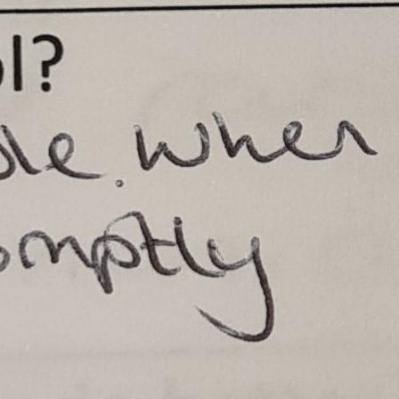 ol?
ole. when
omptly